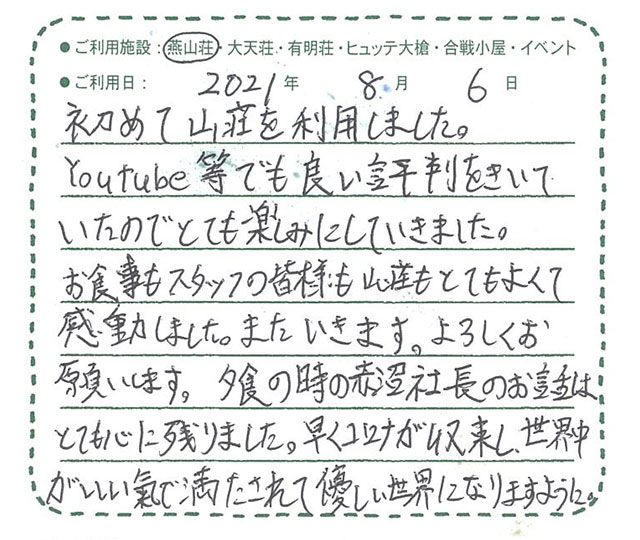 ●ご利用施設：燕山荘・大天荘・有明荘・ヒュッテ大槍・合戦小屋・イベント
●ご利用日： 2021年 8月 6日
初めて山荘を利用しました。
Youtube等でも良い評判をきいて
いたのでとても楽しみにしていきました。
お食事もスタッフの皆様も山荘もとてもよくて
感動しました。またいきます。よろしくお
願いします。夕食の時の赤沼社長のお話は
とても心に残りました。早くコロナが収束し、世界中
がいい氣で満たされて優しい世界になりますように。